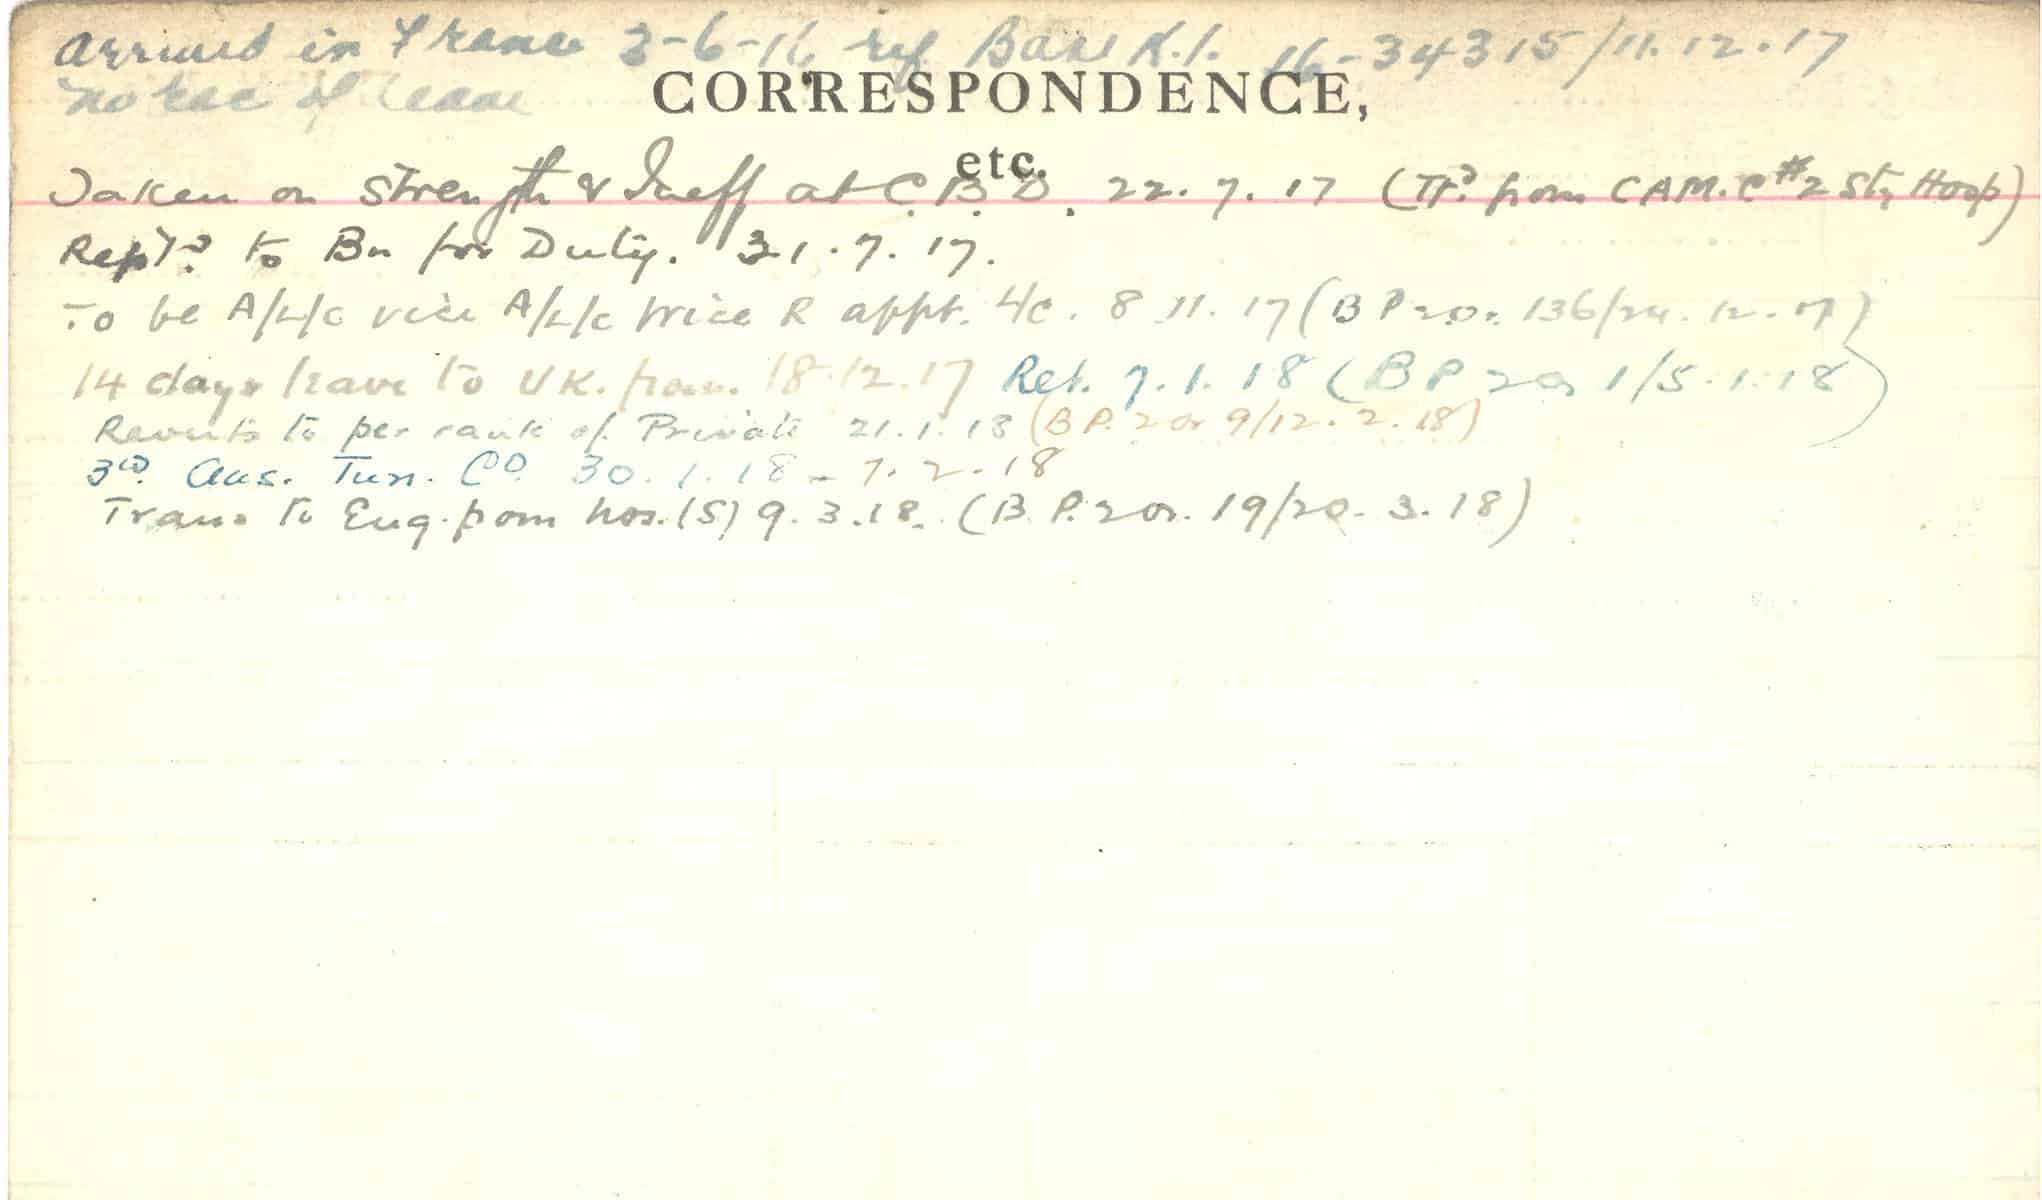 Arrived in France 3-6-16 ref Base K.1. 16-34315/11.12.17
CORRESPONDENCE,
no rec of leave
etc.
Taken on strength & Ineff at C.B.D. 22.7.17 (Tr'd from CAM.C #2 Sty Hosp)
Rept'd to Bn for Duty. 31.7.17.
To be A/L/c vice A/L/c Price R appt. L/c. 8.11.17 (B P 2 Or. 136/24.12.17)
14 days leave to UK. from 18.12.17 Ret. 7.1.18 (B P 2 Or 1/5.1.18)
Reverts to per rank of Private 21.1.18 (B P. 2 Or 9/12.2.18)
3rd Aus. Tun. Co 30.1.18 - 7.2.18
Trans to Eng. from hos. (S) 9.3.18. (B.P. 2 Or. 19/20.3.18)